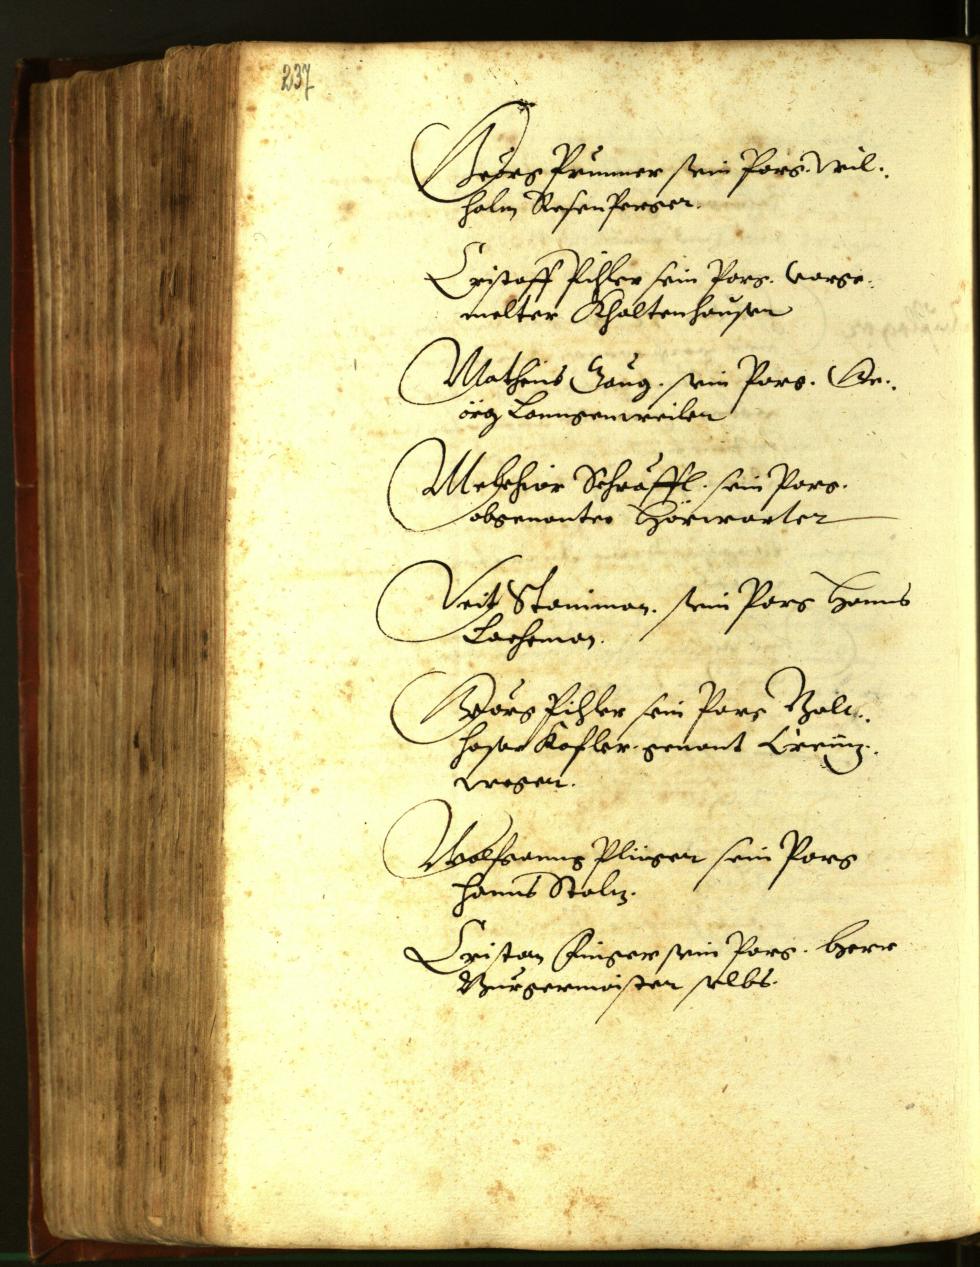 237
Geörg Prunner sein Porg. Wil-
halm Rosenperger.
Cristoff Pihler sein Porg. vorge-
melter Khaltenhauser
Matheus Haug. sein Porg. Ge-
örg Lanngenweiler
Melchior Schräffl. sein Porg.
obgenanter Hörwarter
Veit Staniman. sein Porg Hanns
Lacheman.
Geörg Pihler sein Porg Balt-
hasar Kofler. genant Creuz-
weger.
Wolfganng Plinger sein Porg
Hanns Stolz.
Cristan Finger sein Porg. Herr
Burgermaister selbs.